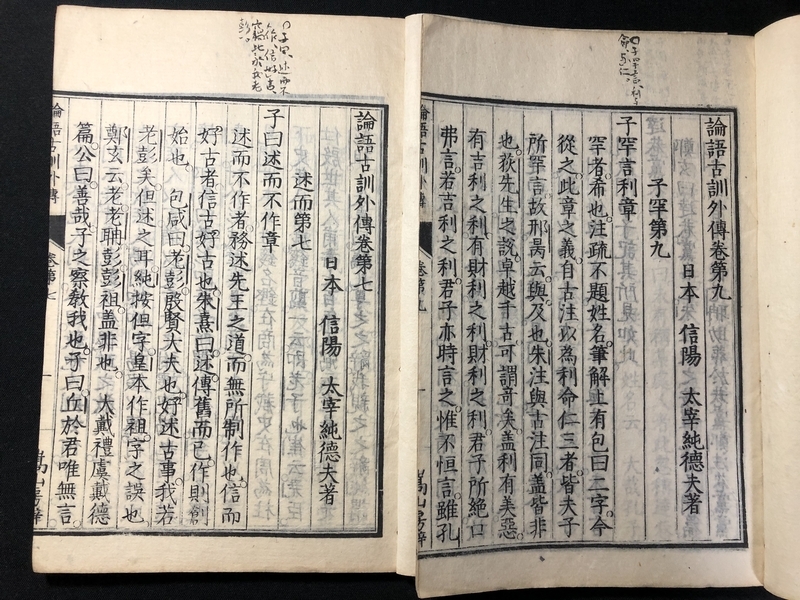 論語古訓外傳卷第九
日本 信陽 太宰純德夫著
子罕第九
子罕言利章
罕者。希也。注疏不題姓名。筆解上有包曰二字。今
從之。此章之義。自古注以為利命仁三者。皆夫子
所罕言。故邢昺云。與。及也。朱注與古注同。蓋皆非
也。荻先生之說。卓越千古。可謂奇矣。蓋利有美惡。
有吉利之利。有財利之利。財利之利。君子所絕口
弗言。若吉利之利。君子亦時言之。惟不恒言。雖孔
論語古訓外傳 卷第九 一
論語古訓外傳卷第七
日本 信陽 太宰純德夫著
述而第七
子曰述而不作章
述而不作者。務述先王之道。而無所制作也。信而
好古者。信古好古也。朱熹曰。述。傳舊而已。作則創
始也。 包咸曰。老彭。殷賢大夫也。好述古事。我若
老彭矣。但述之耳。純按但字。皇本作祖。字之誤也。
鄭玄云。老。老聃。彭。彭祖。蓋非也。 大戴禮虞戴德
篇。公曰。善哉。子之察敎我也。子曰。丘於君唯無言。
論語古訓外傳 卷第七 一